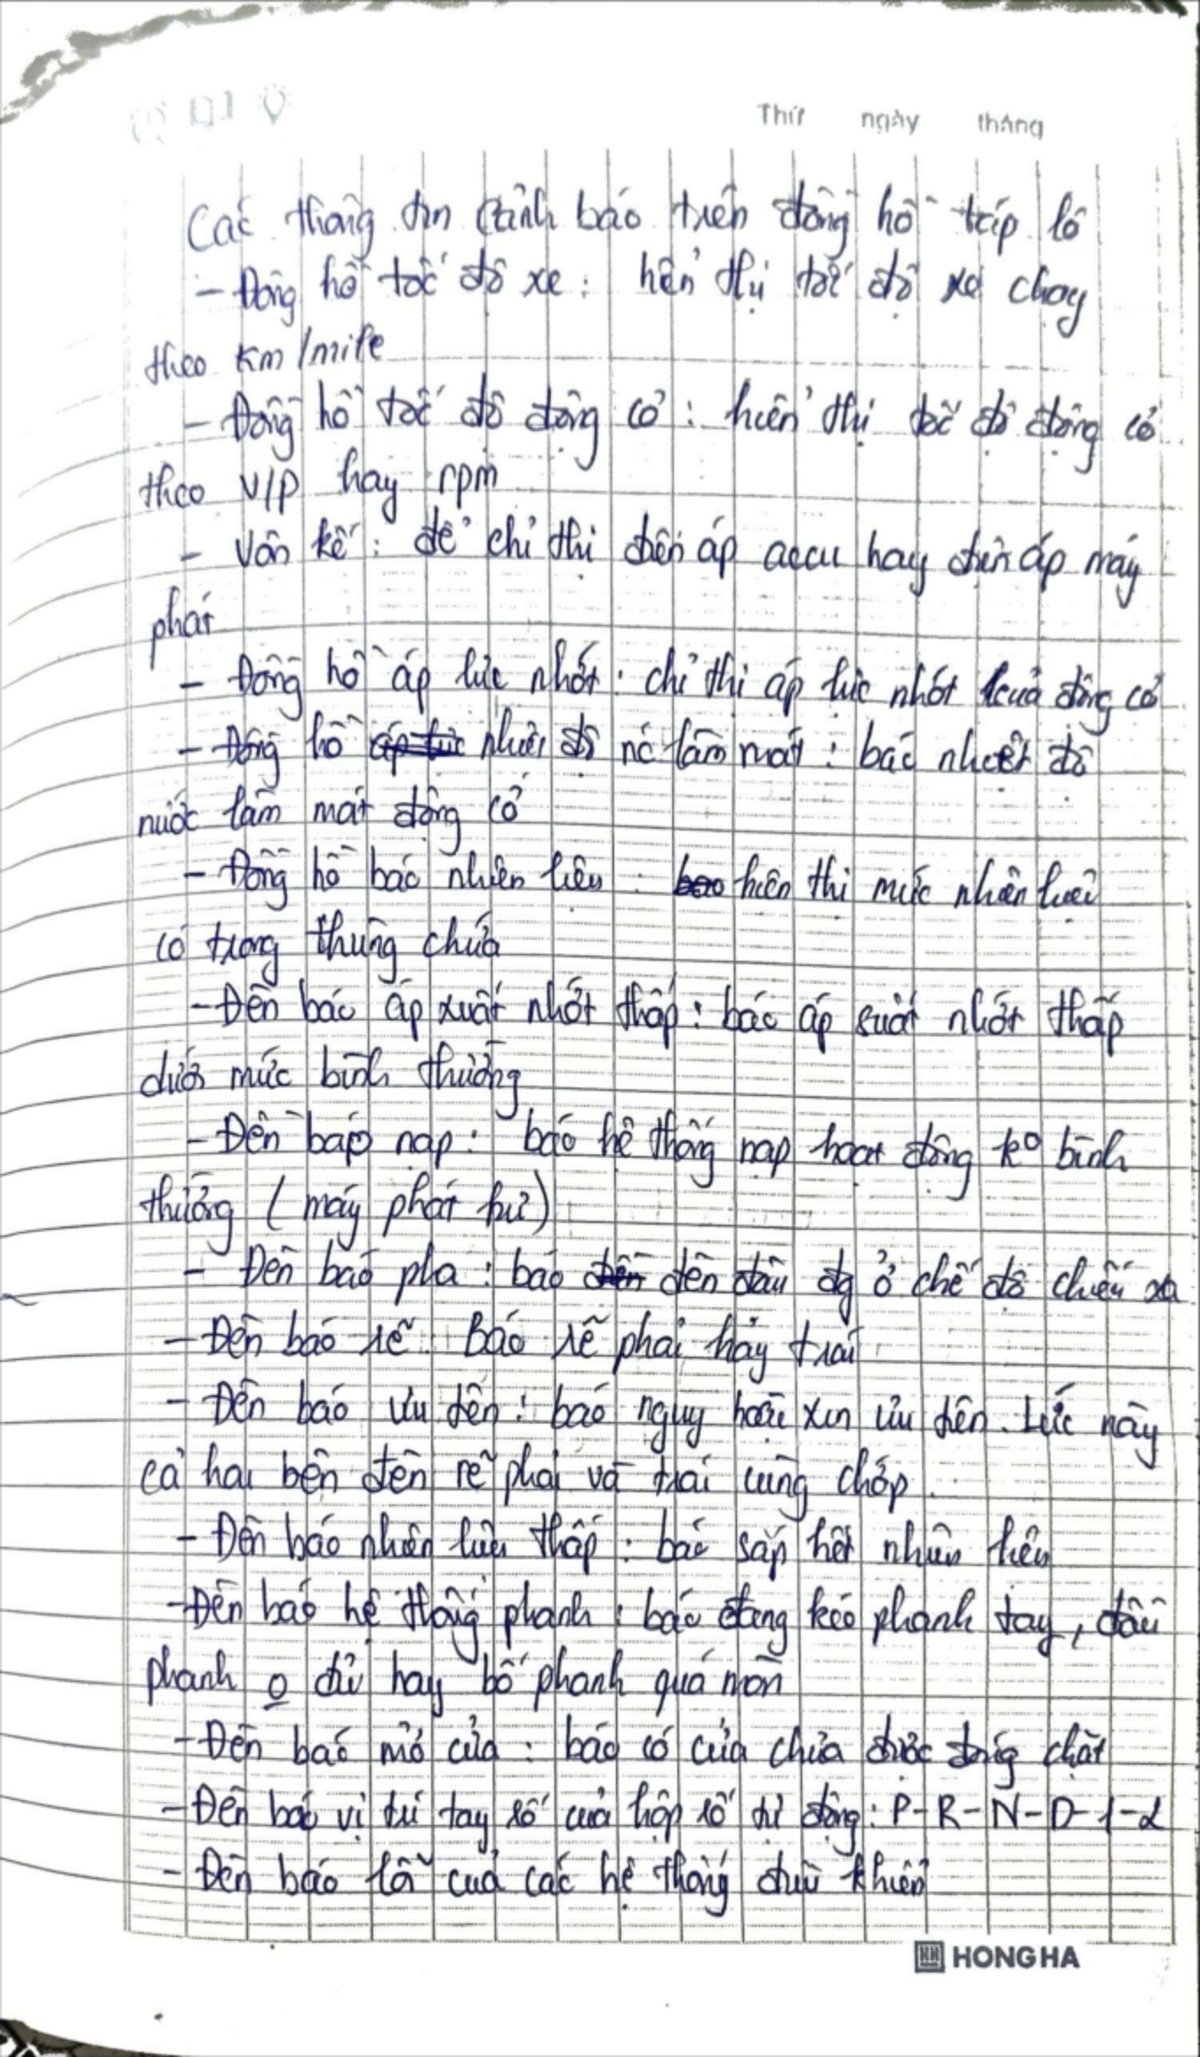 Thứ ngày tháng
Các thông tin cảnh báo trên đồng hồ táp lô
- Đồng hồ tốc độ xe : hiển thị tốc độ xe chạy
theo km/mile
- Đồng hồ tốc độ động cơ : hiển thị tốc độ động cơ
theo v/p hay rpm
- Vôn kế : để chỉ thị điện áp accu hay điện áp máy
phát
- Đồng hồ áp lực nhớt : chỉ thị áp lực nhớt của động cơ
- Đồng hồ áp lực nhiệt độ nc làm mát : báo nhiệt độ
nước làm mát động cơ
- Đồng hồ báo nhiên liệu : báo hiển thị mức nhiên liệu
có trong thùng chứa
- Đèn báo áp xuất nhớt thấp : báo áp suất nhớt thấp
dưới mức bình thường
- Đèn báo nạp : báo hệ thống nạp hoạt động ko bình
thường (máy phát hư)
- Đèn báo pha : báo đèn đèn đầu đg ở chế độ chiếu xa
- Đèn báo rẽ : Báo rẽ phải hảy trái
- Đèn báo ưu tiên : báo nguy hoặc xin ưu tiên. Lúc này
cả hai bên đèn rẽ phải và trái cùng chớp.
- Đèn báo nhiên liệu thấp : báo sắp hết nhiên liệu
- Đèn báo hệ thống phanh : báo đang kéo phanh tay, dầu
phanh o đủ hay bố phanh quá mòn
- Đèn báo mở cửa : báo có cửa chưa được đóng chặt
- Đèn báo vị trí tay số của hộp số tự động : P-R-N-D-1-2
- Đèn báo lỗi của các hệ thống điều khiển
HONG HA